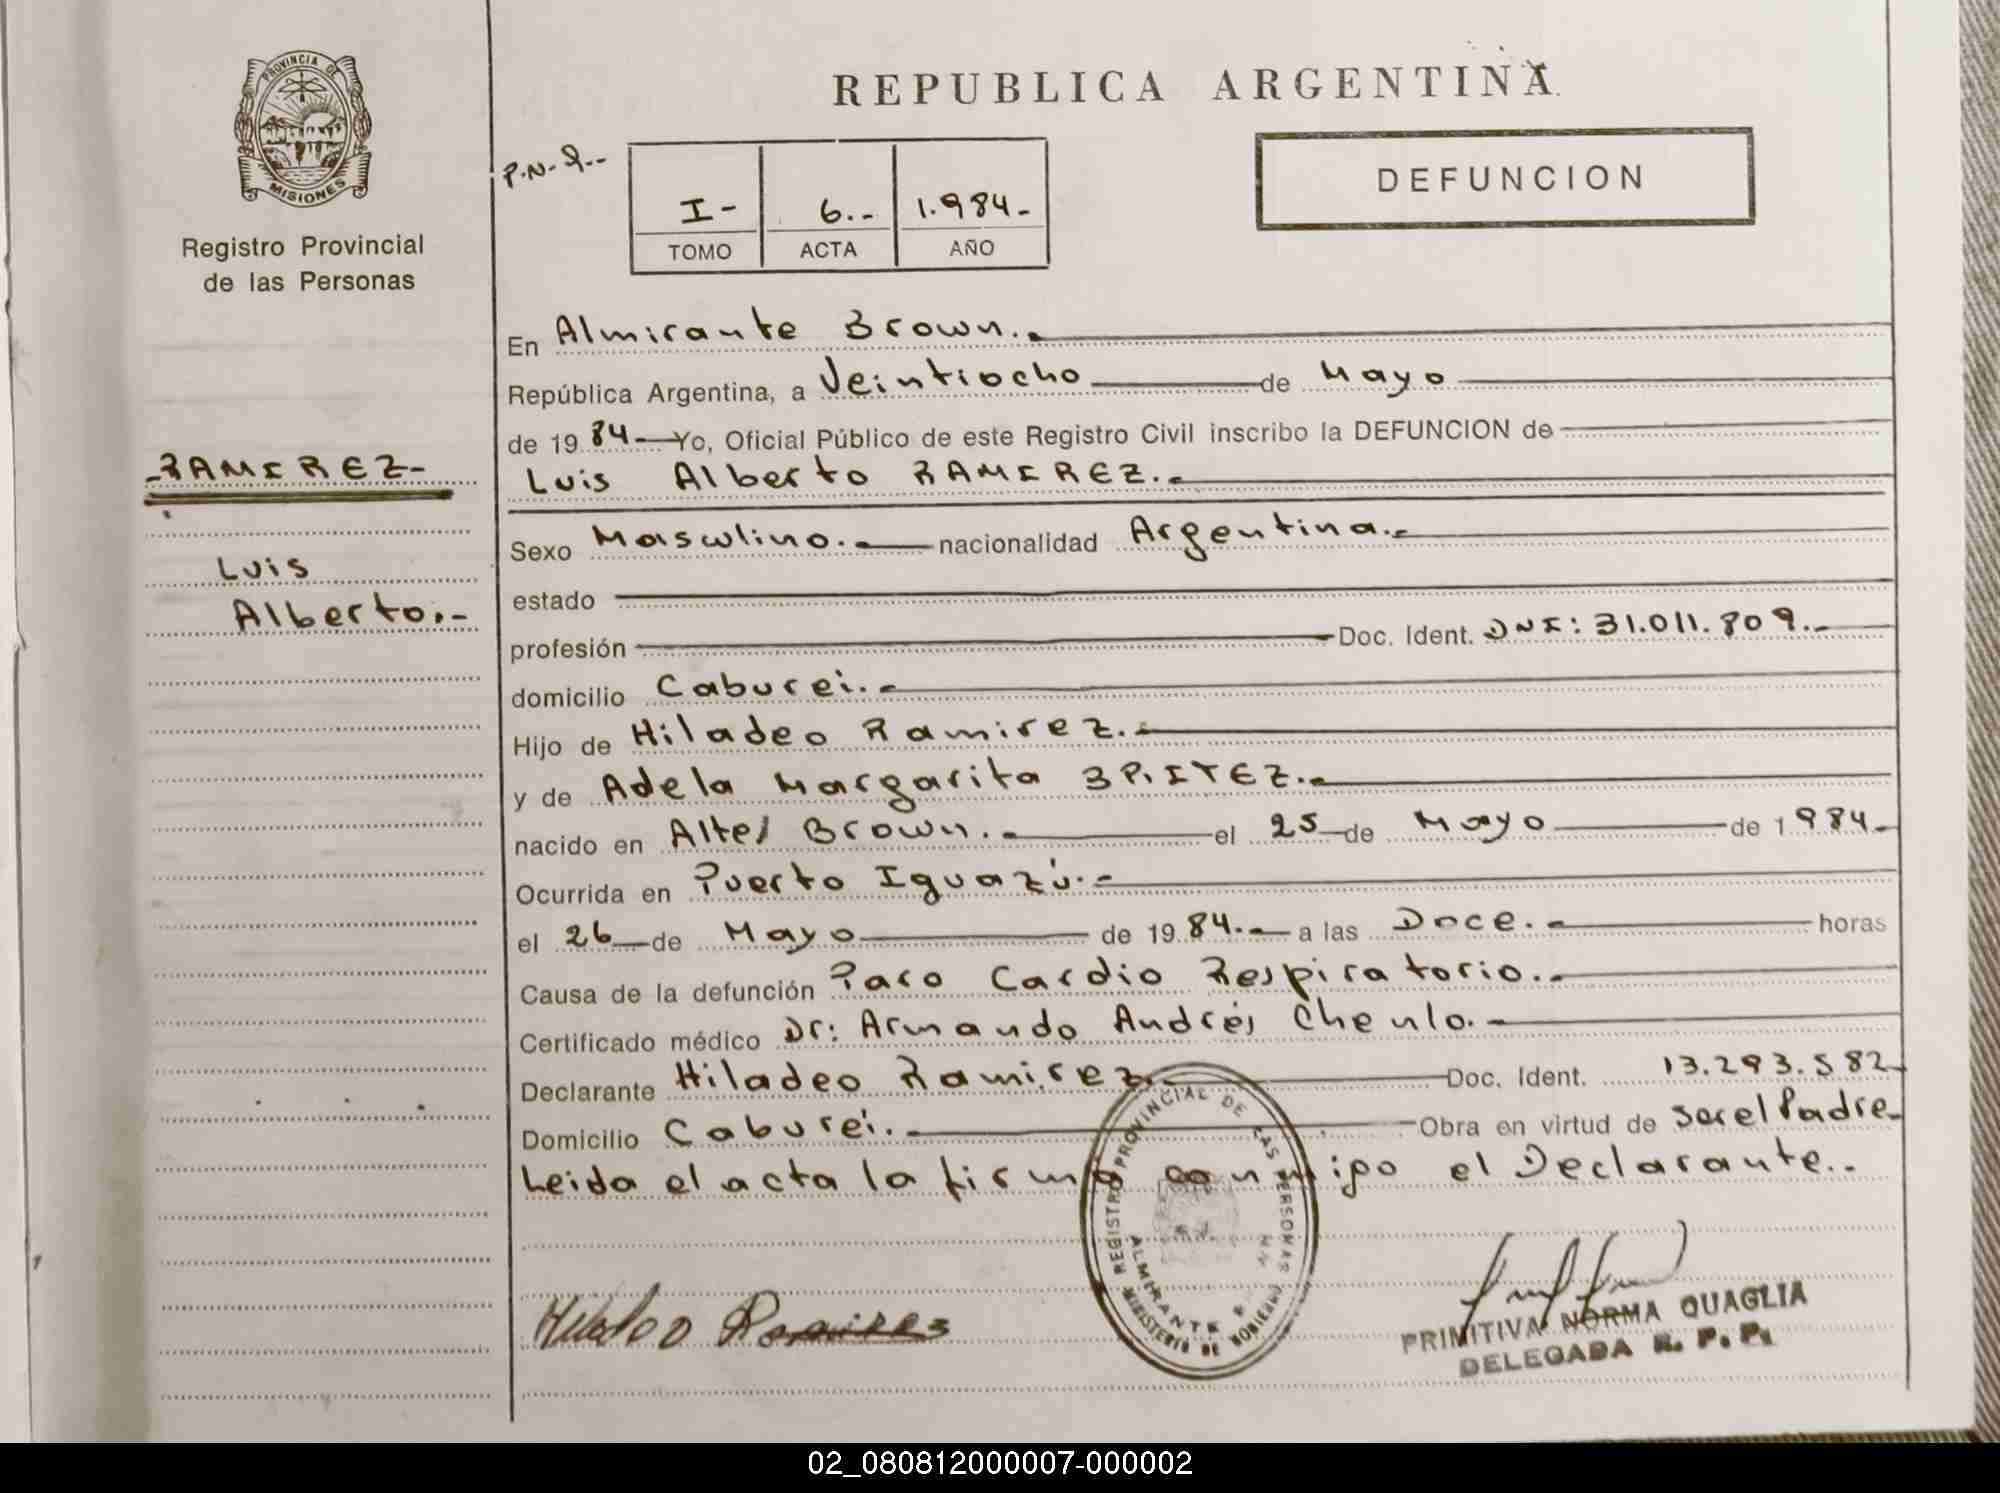 PROVINCIA DE
MISIONES
Registro Provincial
de las Personas
REPUBLICA ARGENTINA
P.N.
I- 6.- 1.984-
TOMO ACTA AÑO
DEFUNCION
En Almirante Brown.-
República Argentina, a Veintiocho de Mayo
de 1984 Yo, Oficial Público de este Registro Civil inscribo la DEFUNCION de
-RAMIREZ-
Luis
Alberto.-
Luis Alberto RAMIREZ.-
Sexo Masculino.- nacionalidad Argentina.-
estado
profesión Doc. Ident. DNI: 31.011.809.-
domicilio Caburei.-
Hijo de Hiladeo Ramirez.-
y de Adela Margarita
nacido en Alte Brown.- el 25 de Mayo de 1984-
Ocurrida en Puerto Iguazú.-
el 26 de Mayo de 1984.- a las Doce.- horas
Causa de la defunción Paro Cardio Respiratorio.-
Certificado médico Dr: Armando Andrés Chenlo.-
Declarante Hiladeo Ramirez.- Doc. Ident. 13.293.582-
Domicilio Caburei.- Obra en virtud de ser el Padre-
Leida el acta la firma conmigo el Declarante.-
REGISTRO PROVINCIAL DE LAS PERSONAS
ALMIRANTE B
MINISTERIO DE GOBIERNO
Ramires
PRIMITIVA NORMA QUAGLIA
DELEGADA R. P. P.
02_080812000007-000002